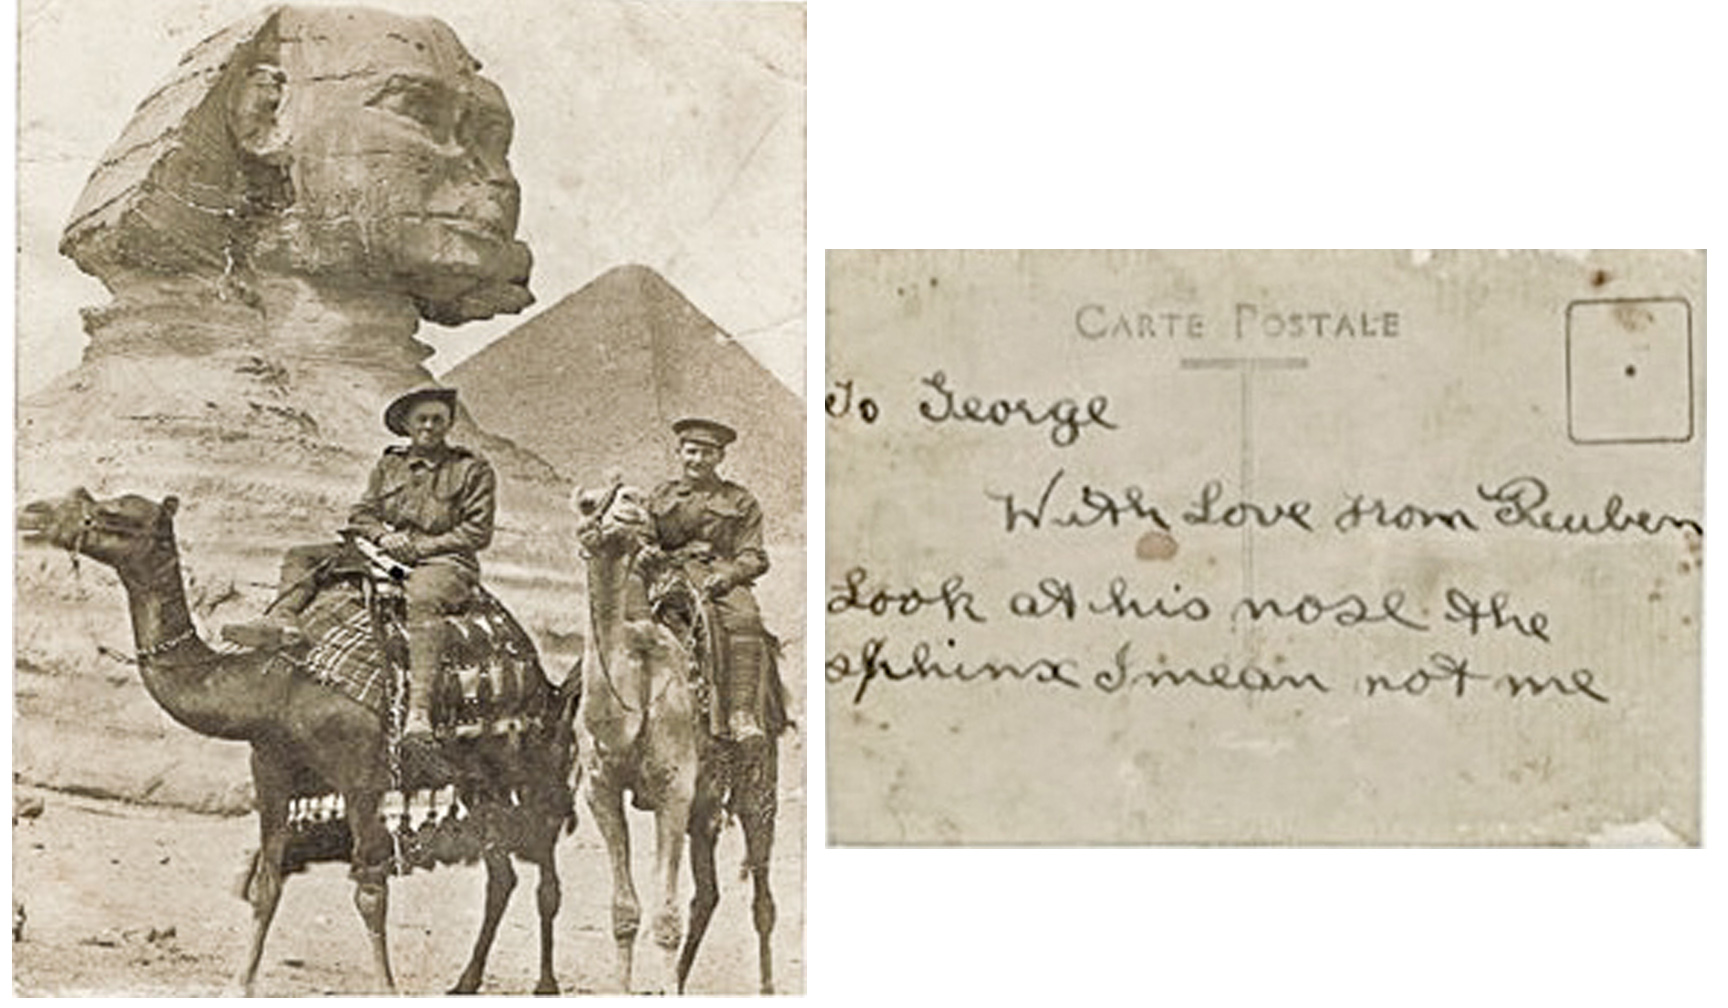 CARTE POSTALE
To George
With Love from Reuben
Look at his nose the
sphinx I mean not me